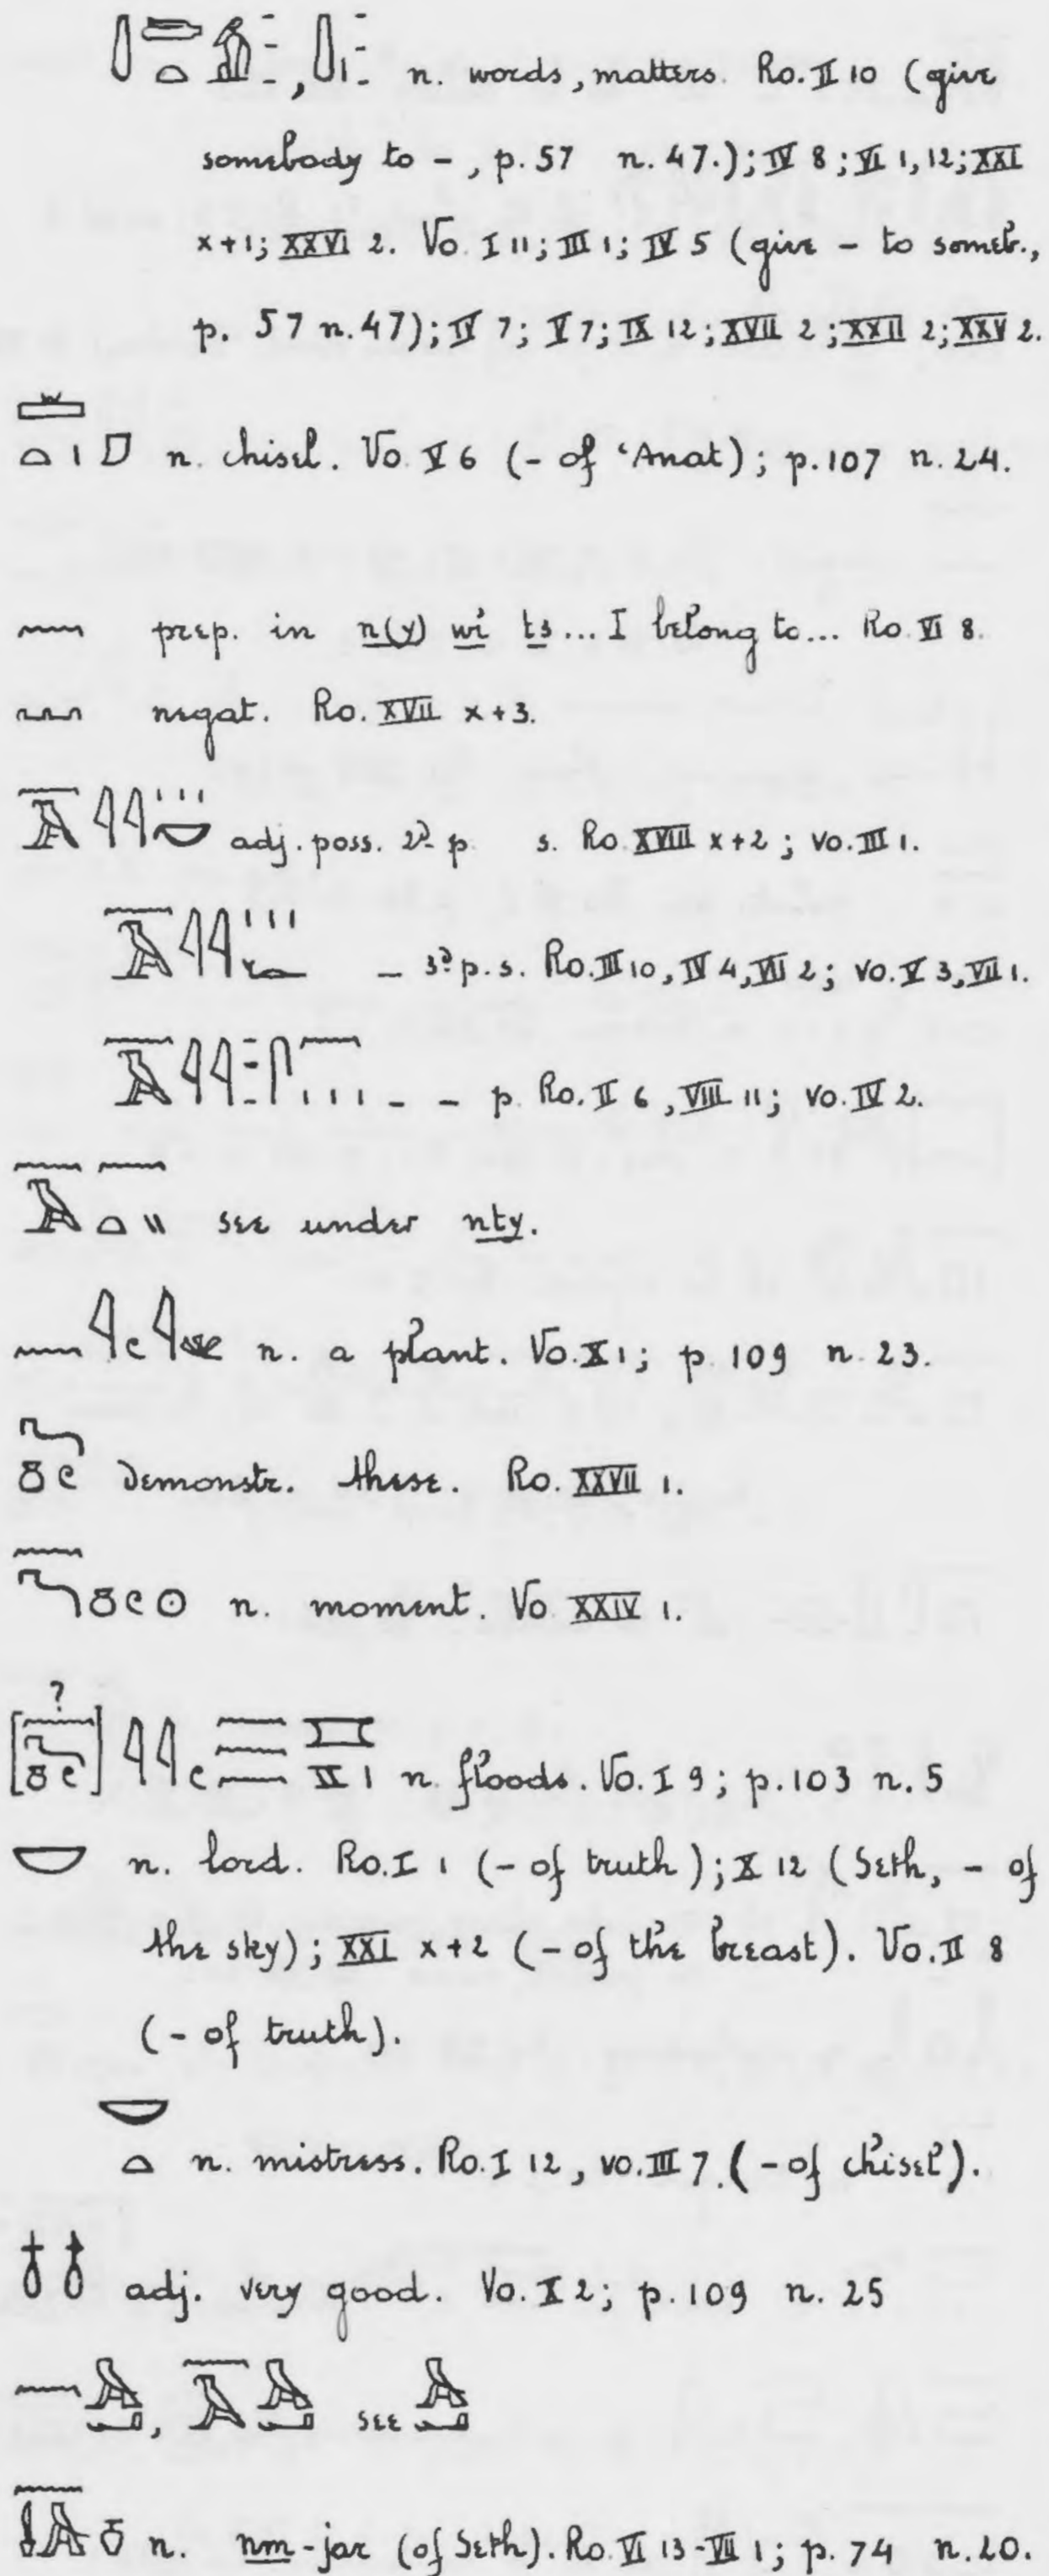 n. words, matters. Ro. II 10 (give
somebody to -, p. 57 n. 47.); IV 8; VI 1, 12; XXI
x+1; XXVI 2. Vo. I 11; III 1; IV 5 (give - to someb.,
p. 57 n. 47); IV 7; V 7; IX 12; XVII 2; XXII 2; XXV 2.
n. chisel. Vo. V 6 (- of ʿAnat); p. 107 n. 24.
prep. in n(y) wi ts... I belong to... Ro. VI 8.
negat. Ro. XVII x+3.
adj. poss. 2d p. s. Ro. XVIII x+2; vo. III 1.
- 3d p. s. Ro. III 10, IV 4, VII 2; vo. V 3, VII 1.
- - p. Ro. II 6, VIII 11; vo. IV 2.
see under nty.
n. a plant. Vo. X 1; p. 109 n. 23.
demonstr. these. Ro. XXVII 1.
n. moment. Vo. XXIV 1.
[?] n. floods. Vo. I 9; p. 103 n. 5
n. lord. Ro. I 1 (- of truth); X 12 (Seth, - of
the sky); XXI x+2 (- of the breast). Vo. II 8
(- of truth).
n. mistress. Ro. I 12, vo. III 7. (- of chisel).
adj. very good. Vo. X 2; p. 109 n. 25
see
n. nm-jar (of Seth). Ro. VI 13-VII 1; p. 74 n. 20.